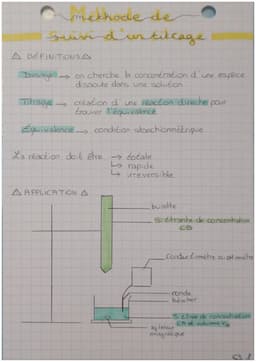 Méthode de
suivi d'un titrage
△ DÉFINITIONS △
Dosage → on cherche la concentration d'une espèce
dissoute dans une solution
Titrage → création d'une réaction directe pour
trouver l'équivalence
Équivalence → condition stoechiométrique
La réaction doit être → totale
→ rapide
→ irréversible
△ APPLICATION △
burette
S. titrante de concentration
CB
conductimètre ou pH mètre
sonde
bécher
S. titrée de concentration
CA et volume VA
agitateur
magnétique